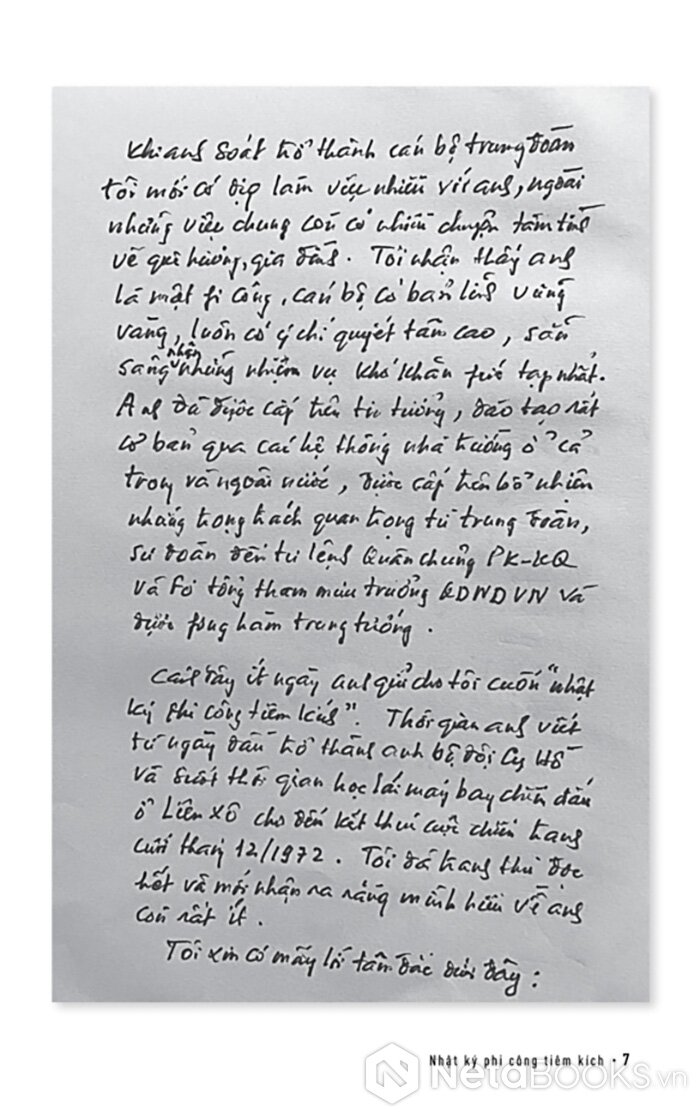 Khi anh Soát trở thành cán bộ trung đoàn
tôi mới có dịp làm việc nhiều với anh, ngoài
những việc chung còn có nhiều chuyện tâm tình
về quê hương, gia đình. Tôi nhận thấy anh
là một fi công, cán bộ có bản lĩnh vững
vàng, luôn có ý chí quyết tâm cao, sẵn
sàng nhận những nhiệm vụ khó khăn fức tạp nhất.
Anh đã được cấp trên tin tưởng, đào tạo rất
cơ bản qua các hệ thống nhà trường ở cả
trong và ngoài nước, được cấp trên bổ nhiệm
những trọng trách quan trọng từ trung đoàn,
sư đoàn đến tư lệnh Quân chủng PK-KQ
và Fó tổng tham mưu trưởng QDNDVN và
được fong hàm trung tướng.
Cách đây ít ngày anh gửi cho tôi cuốn "nhật
ký phi công tiêm kích". Thời gian anh viết
từ ngày đầu trở thành anh bộ đội Cụ Hồ
và suốt thời gian học lái máy bay chiến đấu
ở Liên Xô cho đến kết thúc cuộc chiến tranh
cuối tháng 12/1972. Tôi đã tranh thủ đọc
hết và mới nhận ra rằng mình hiểu về anh
còn rất ít.
Tôi xin có mấy lời tâm đắc dưới đây:
Nhật ký phi công tiêm kích • 7
NetaBooks.vn